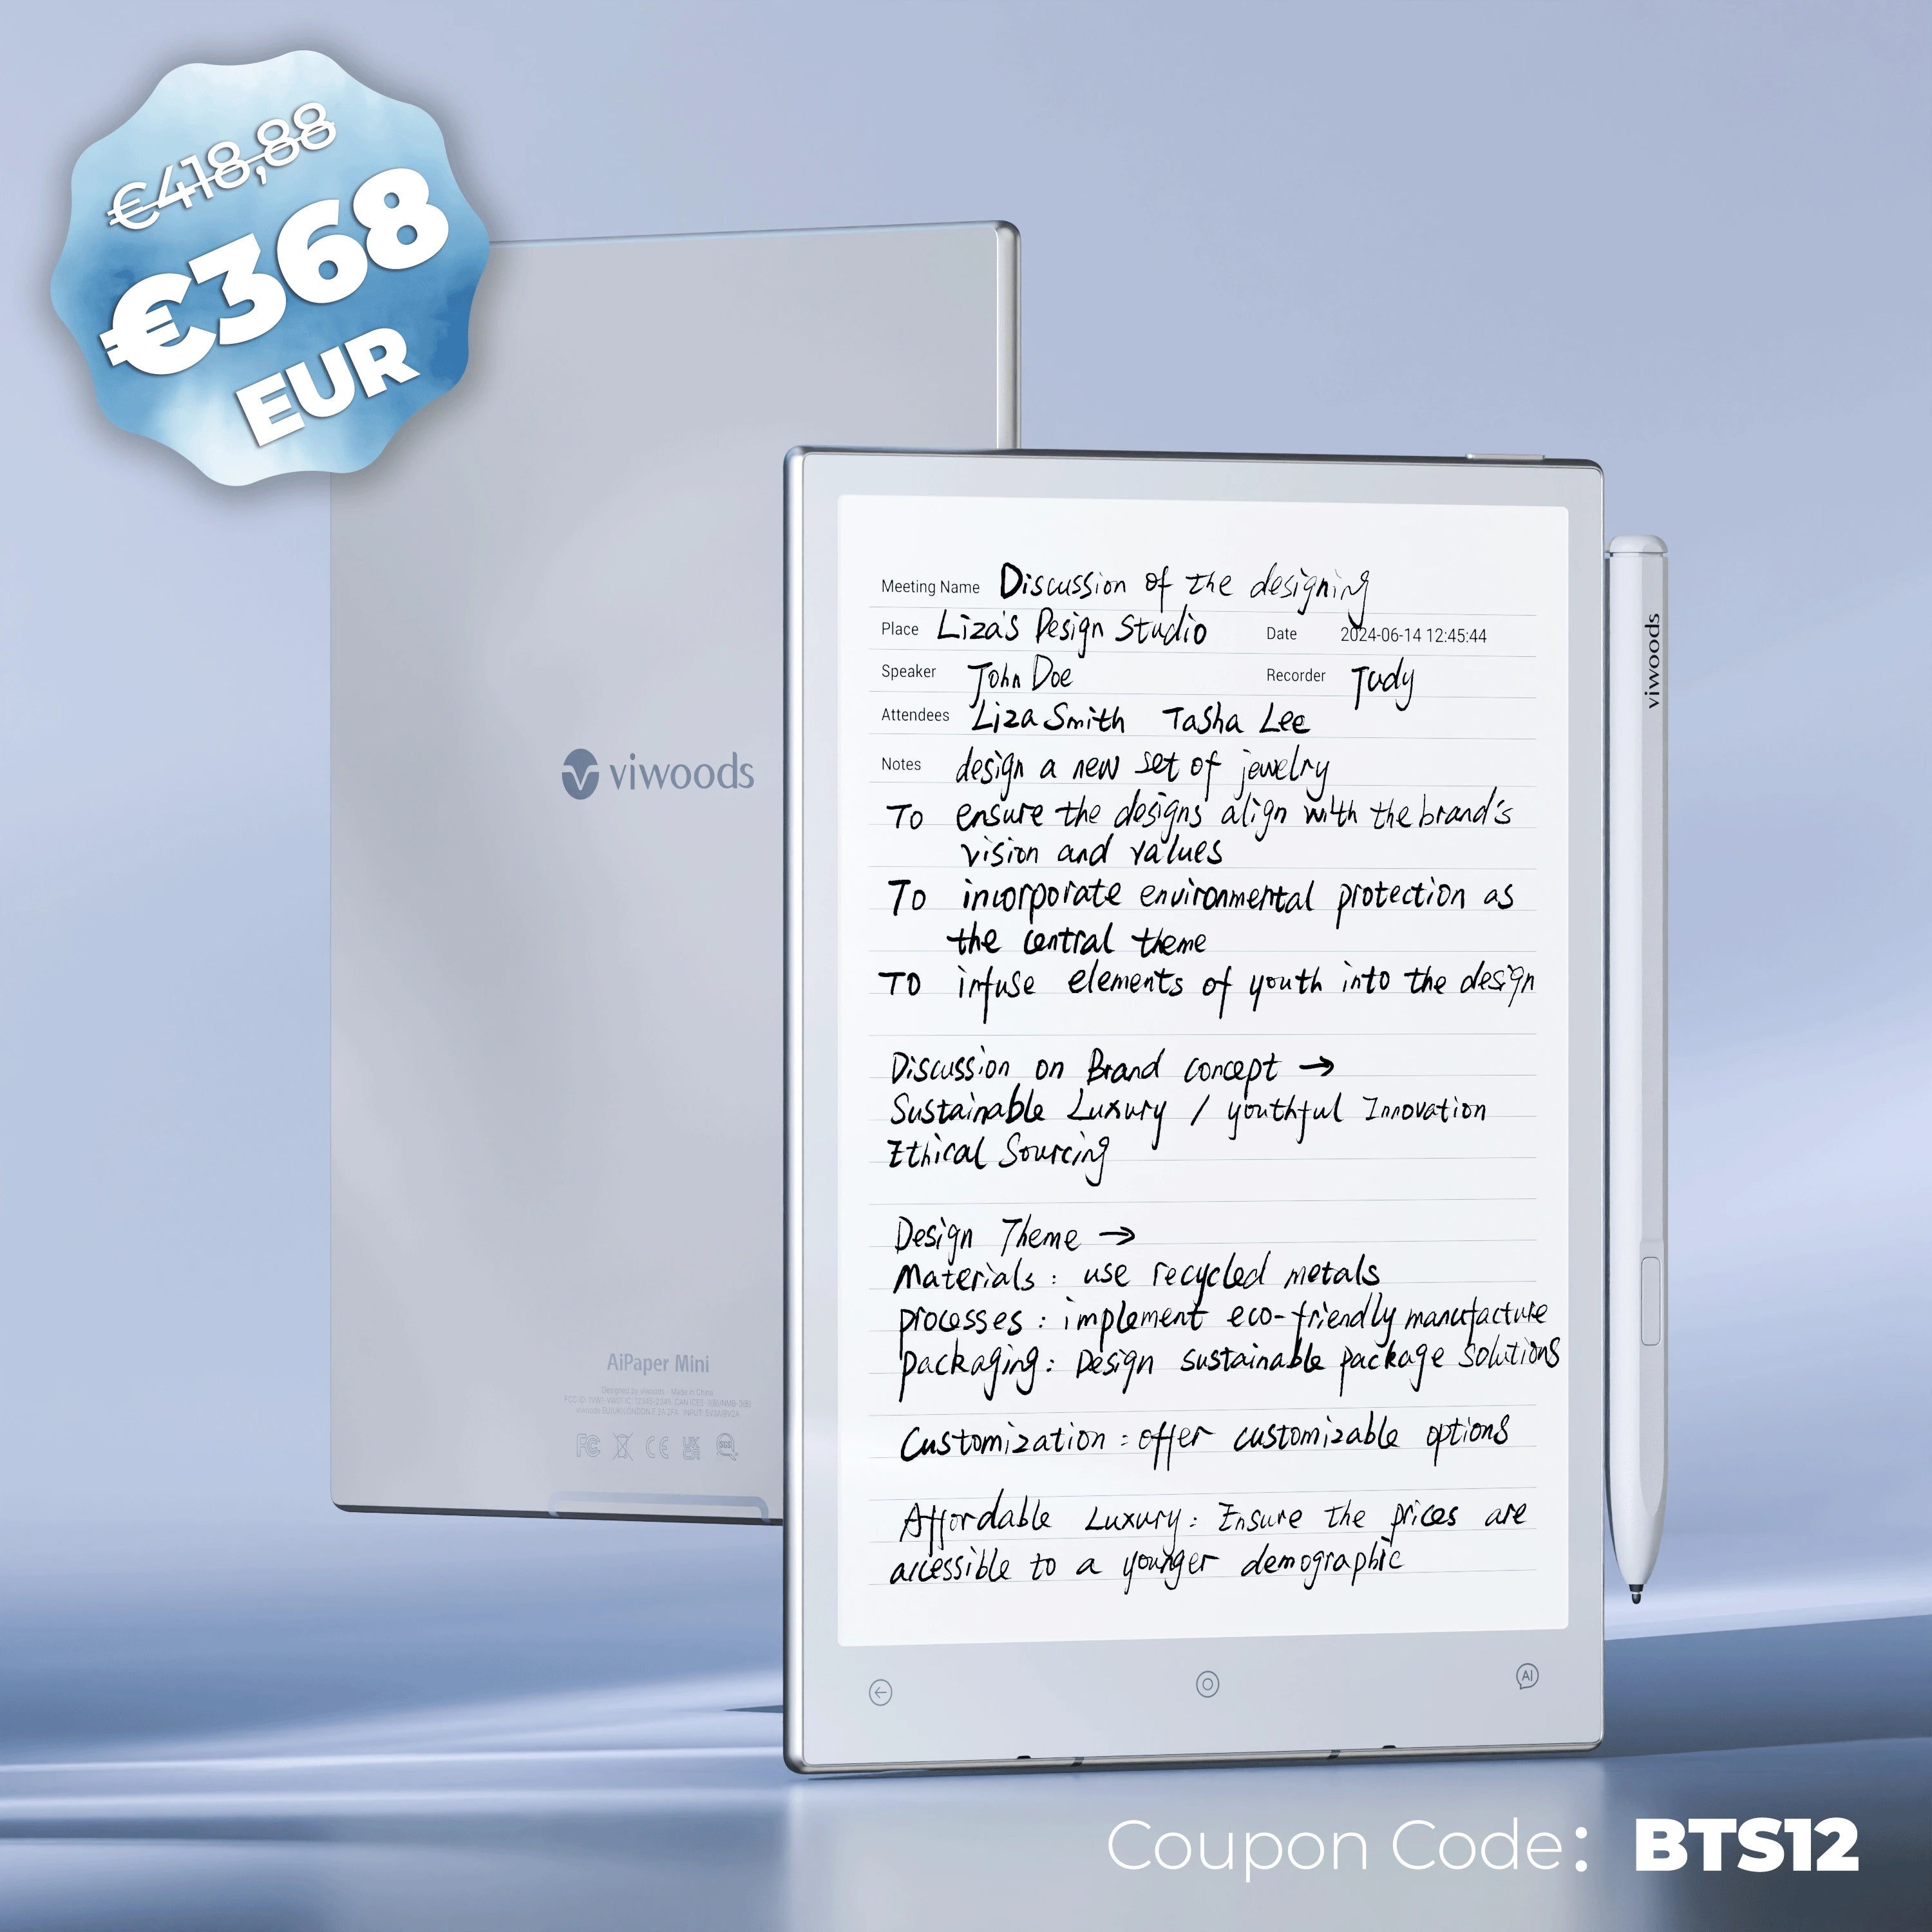 €418,88
€368
EUR
viwoods
AiPaper Mini
Designed by viwoods - Made in China
FC
CE
UK
CA
SGS
Meeting Name Discussion of the designing
Place Liza's Design Studio Date 2024-06-14 12:45:44
Speaker John Doe Recorder Judy
Attendees Liza Smith Tasha Lee
Notes design a new set of jewelry
To ensure the designs align with the brand's
vision and values
To incorporate environmental protection as
the central theme
To infuse elements of youth into the design
Discussion on Brand concept →
Sustainable Luxury / youthful Innovation
Ethical Sourcing
Design Theme →
Materials: use recycled metals
processes: implement eco-friendly manufacture
packaging: Design sustainable package solutions
Customization: offer customizable options
Affordable Luxury: Ensure the prices are
accessible to a younger demographic
AI
viwoods
Coupon Code: BTS12